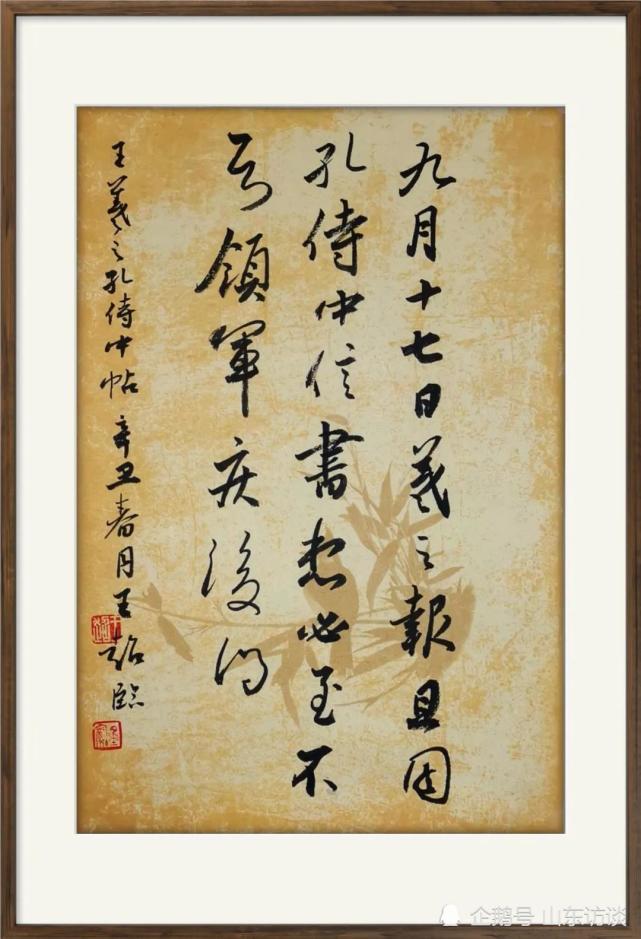 九月十七日羲之報且因
孔侍中信書想必至不
知領軍疾後問
王羲之孔侍中帖 辛丑春月王臨
企鹅号 山东访谈